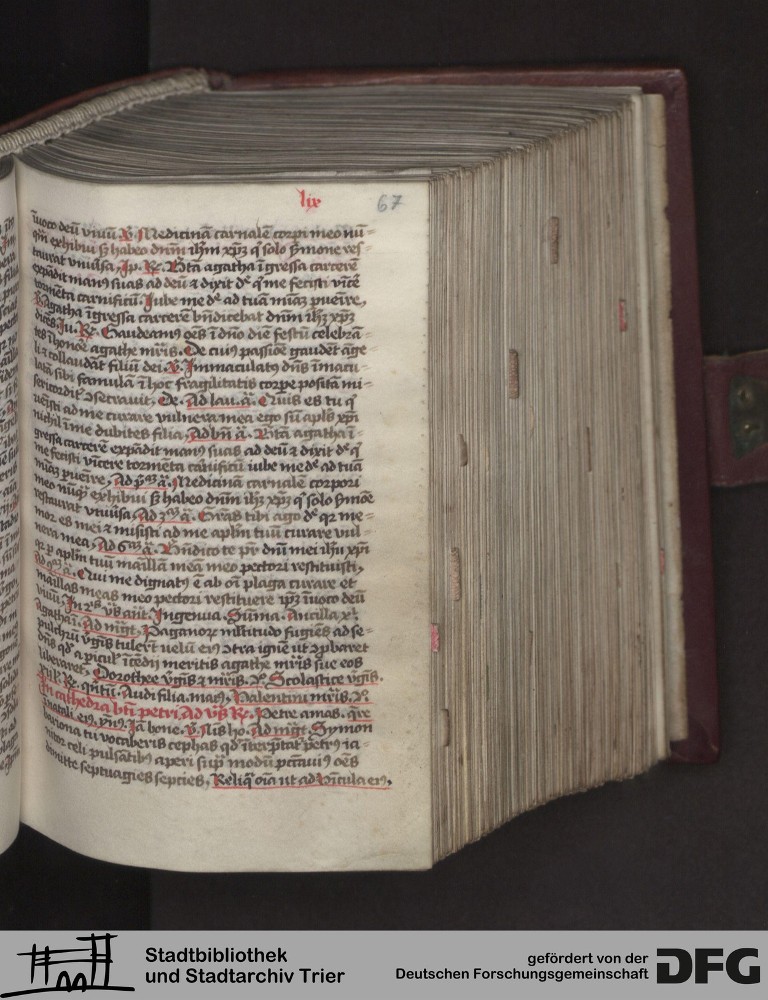 lix
67
īuoco deū viuū. V. Medicinā carnalē corpi meo nū=
qm̄ exhibui sꝫ habeo dnm̄ ihm̄ xpm̄ q̄ solo sermone res=
taurat vniuersa, Ip. R. Btā agatha īgressa carcerē
expādit manꝰ suas ad deū & dixit dꝰ q̄ me fecisti vīcē
tormēta carnificū. Iube me dꝰ ad tuā mīaꝫ puēire,
B. Agatha īgressa carcerē bn̄dicebat dnm̄ ihm̄ xpm̄
dicēs. Iu. R. Gaudeamꝰ oēs ī dn̄o diē festū celebrā=
tes ī honoē agathe mr̄is. De cuiꝰ passiōe gaudēt āge
li & collaudāt filiū dei. V. Immaculatꝰ dn̄s īmacu=
latā sibi famulā ī hoc fragilitatis corpe posita mi=
sericordit̄ ɔseruauit, De. Ad lau. ā. Quis es tu q̄
uēisti ad me curare vulnera mea ego sū apl̄s xp̄i
nichil ī me dubites filia, Ad bn̄ ā. Btā agatha ī=
gressa carcerē expādit manꝰ suas ad deū & dixit dꝰ q̄
me fecisti vīcere tormēta carnificū iube me dꝰ ad tuā
mīaꝫ puēire, Ad p̄mā ā. Medicinā carnalē corpori
meo nūq̄ exhibui sꝫ habeo dn̄m ihm̄ xpm̄ q̄ solo sermōe
restaurat vniuersa, Ad 3ā ā. Gr̄as tibi ago dꝰ qꝛ me=
mor es mei & misisti ad me aplm̄ tuū curare vul=
nera mea, Ad 6ā ā. Bn̄dico te pr̄ dn̄i mei ihu xp̄i
qꝛ p̄ aplm̄ tuū maīllā meā meo pectori restituisti,
Ad 9ā ā. Qui me dignatꝰ ē ab oī plaga curare et
maīllas meas meo pectori restituere ip̄ꝫ īuoco deū
viuū, In 2is vs̄ aūt. Ingenua. Sūma. Ancilla x̄i.
Agatha ī. Ad mgt̄, Paganorꝫ mltitudo fugiēs ad se=
pulchrū v̄gīs tulerūt velū eiꝰ ɔtra ignē ut ɔpbaret
dn̄s qd̓ a picul̓ īcēdij meritis agathe mr̄is sue eos
liberaret, Dorothee v̄gīs & mr̄is. Vꝰ. Scolastice v̄gīs.
Audi filia. Valentini mr̄is. Vꝰ
In cathedra bt̄i petri, Ad vs̄ R. Petre amas. qr̄e
natali eiꝰ. Iā bone. V. Ad mgt̄. Symon
bariona tu vocaberis cephas qd̓ īterp̄tat̄ petrꝰ ia=
nitor celi pulsātibꝰ aperi sup̄ modū pctāuiꝰ oēs
dimitte septuagies septies, Reliq̄ oīa ut ad Vīcula eiꝰ.
Stadtbibliothek
und Stadtarchiv Trier
gefördert von der
Deutschen Forschungsgemeinschaft
DFG